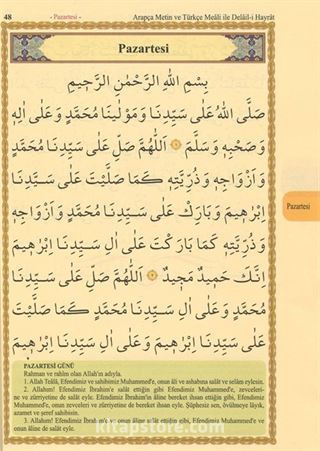 48
- Pazartesi -
Arapça Metin ve Türkçe Meâli ile Delâil-i Hayrât
Pazartesi
بِسْمِ اللّٰهِ الرَّحْمٰنِ الرَّحِيمِ
صَلَّى اللّٰهُ عَلٰى سَيِّدِنَا وَمَوْلٰينَا مُحَمَّدٍ وَعَلٰى اٰلِهِ
وَصَحْبِهِ وَسَلَّمَ ۞ اَللّٰهُمَّ صَلِّ عَلٰى سَيِّدِنَا مُحَمَّدٍ
وَاَزْوَاجِهِ وَذُرِّيَّتِهِ كَمَا صَلَّيْتَ عَلٰى سَيِّدِنَا
اِبْرٰهِيمَ وَبَارِكْ عَلٰى سَيِّدِنَا مُحَمَّدٍ وَاَزْوَاجِهِ
وَذُرِّيَّتِهِ كَمَا بَارَكْتَ عَلٰى اٰلِ سَيِّدِنَا اِبْرٰهِيمَ
اِنَّكَ حَمِيدٌ مَجِيدٌ ۞ اَللّٰهُمَّ صَلِّ عَلٰى سَيِّدِنَا
مُحَمَّدٍ وَعَلٰى اٰلِ سَيِّدِنَا مُحَمَّدٍ كَمَا صَلَّيْتَ
عَلٰى سَيِّدِنَا اِبْرٰهِيمَ وَعَلٰى اٰلِ سَيِّدِنَا اِبْرٰهِيمَ
Pazartesi
PAZARTESİ GÜNÜ
Rahman ve rahîm olan Allah'ın adıyla.
1. Allah Teâlâ, Efendimiz ve sahibimiz Muhammed'e, onun âli ve ashabına salât ve selâm eylesin.
2. Allahım! Efendimiz İbrahim'e salât ettiğin gibi Efendimiz Muhammed'e, zevceleri-
ne ve zürriyetine de salât eyle. Efendimiz İbrahim'in âline bereket ihsan ettiğin gibi, Efendimiz
Muhammed'e, onun zevceleri ve zürriyetine de bereket ihsan eyle. Şüphesiz sen, övülmeye lâyık,
azamet ve şeref sahibisin.
3. Allahım! Efendimiz İbrahim'e ve onun âline salât ettiğin gibi, Efendimiz Muhammed'e ve
onun âline de salât eyle.
kitapstore.com